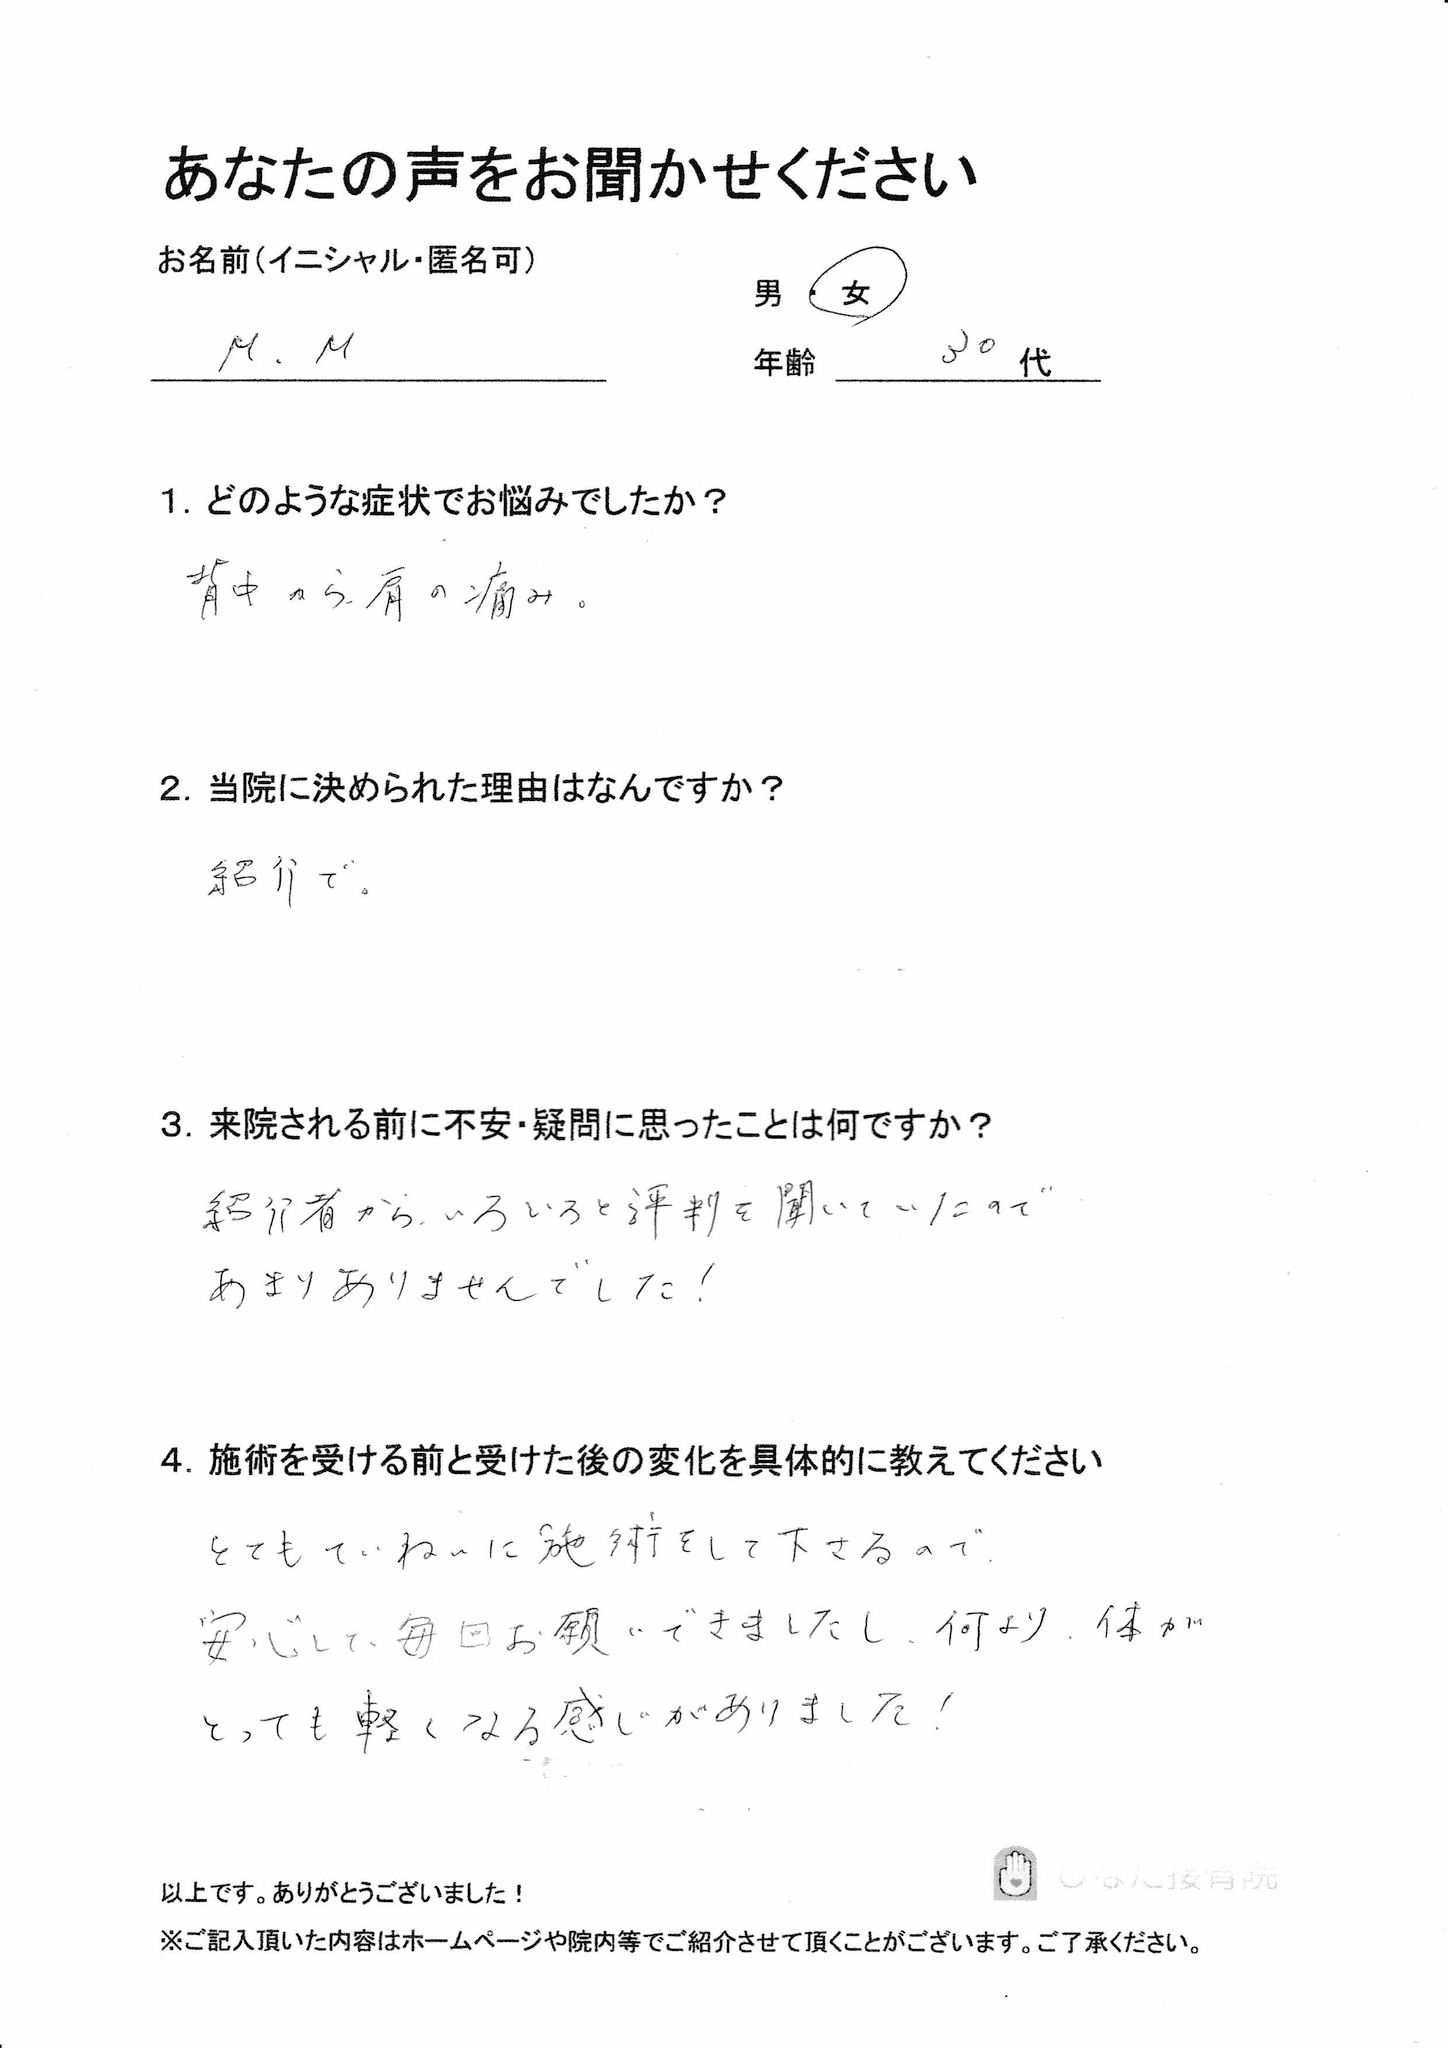 あなたの声をお聞かせください
お名前(イニシャル・匿名可)
男・女
M.M
年齢 30代
1. どのような症状でお悩みでしたか?
背中から肩の痛み。
2. 当院に決められた理由はなんですか?
紹介で。
3. 来院される前に不安・疑問に思ったことは何ですか?
紹介者から、いろいろと評判を聞いていたので
あまりありませんでした!
4. 施術を受ける前と受けた後の変化を具体的に教えてください
とてもていねいに施術をして下さるので、
安心して、毎回お願いできましたし、何より、体が
とっても軽くなる感じがありました!
以上です。ありがとうございました!
ひなた接骨院
※ご記入頂いた内容はホームページや院内等でご紹介させて頂くことがございます。ご了承ください。